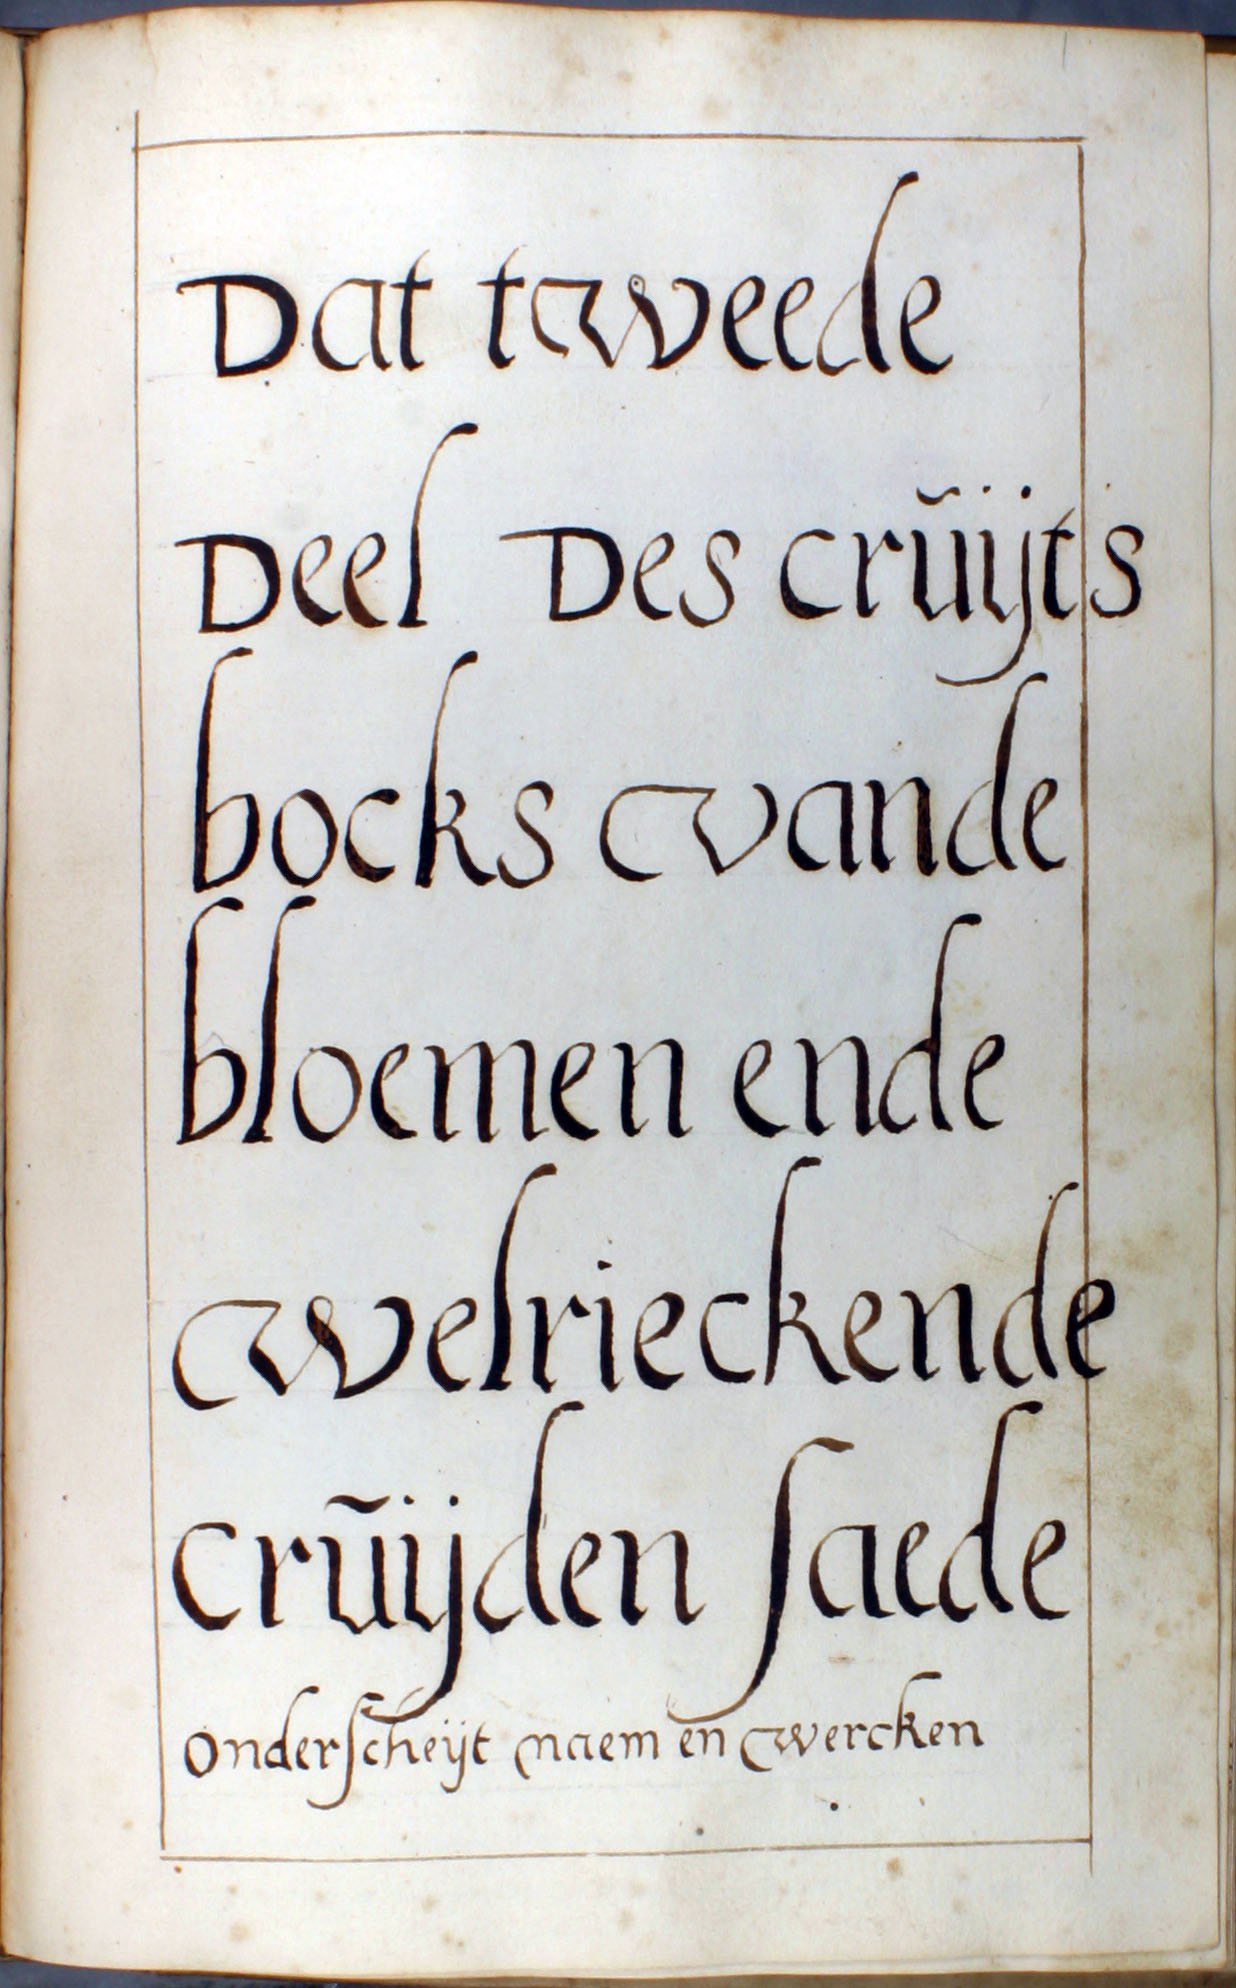 Dat tweede
Deel Des crŭijts
bocks vande
bloemen ende
welrieckende
crŭijden saede
onderscheijt naem en wercken